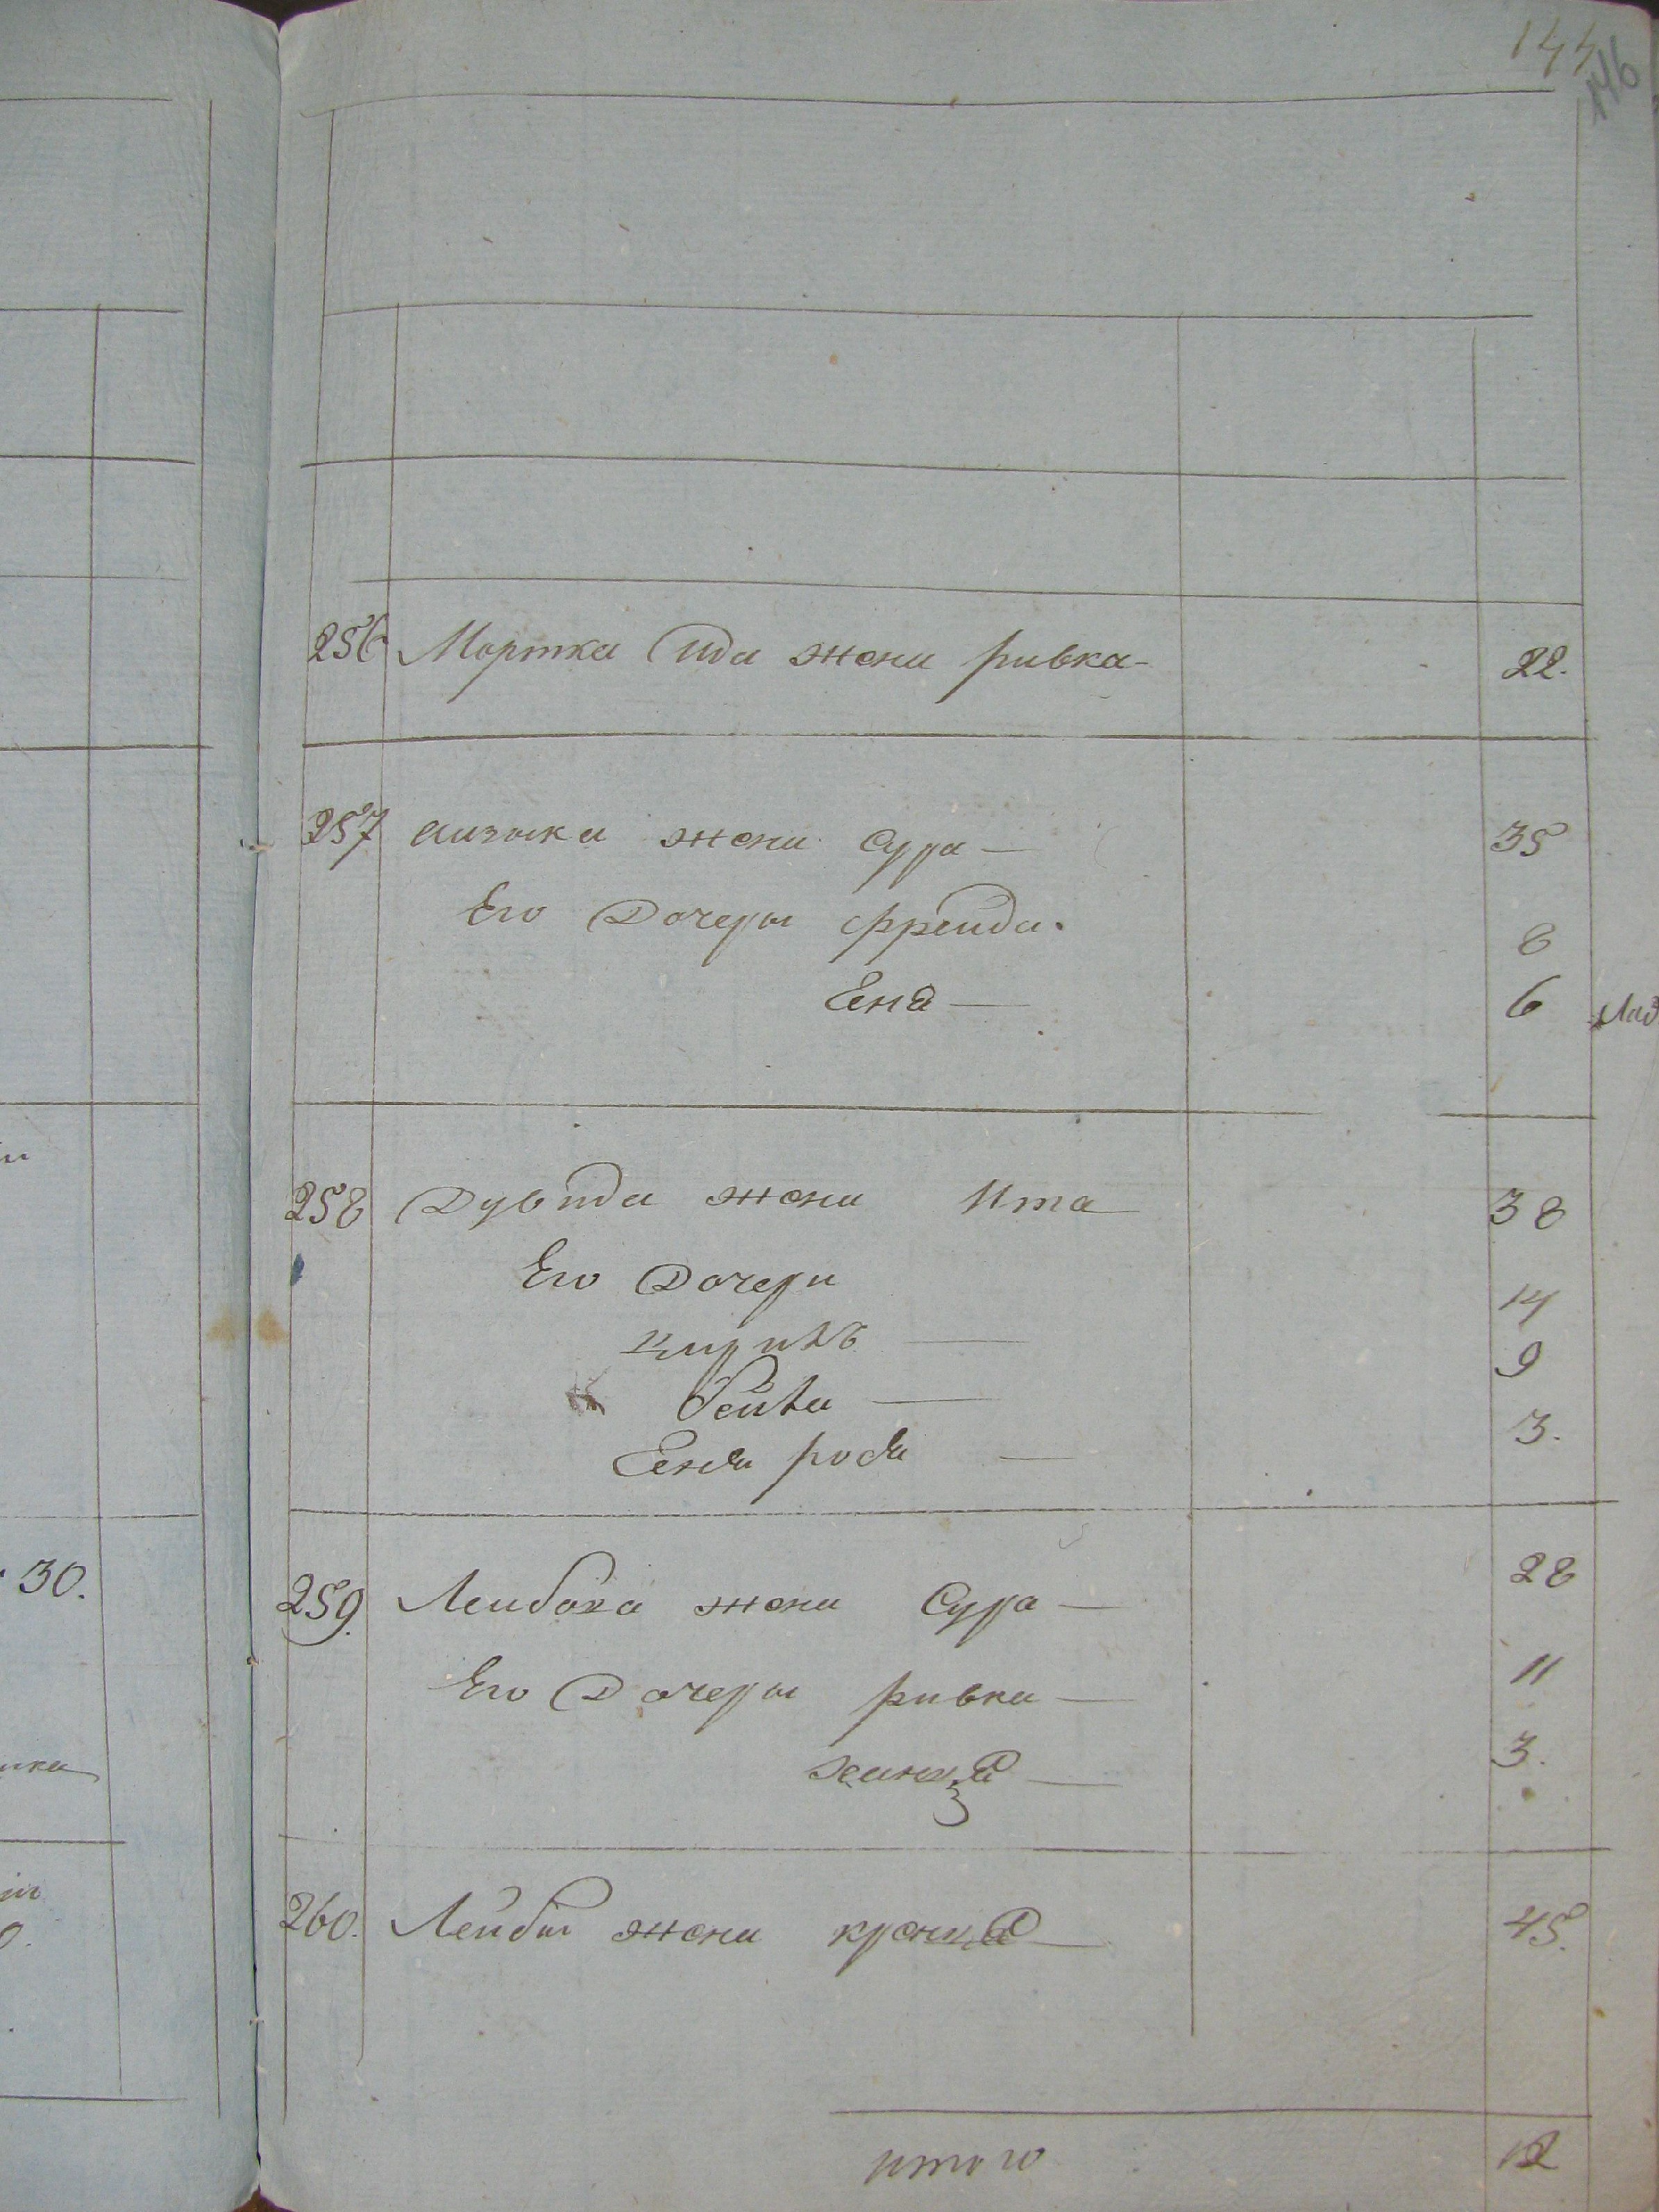 144
146
256 Мортка Ида жена ривка - 22.
257 аизыка жена Сура — 35
Его Дочеры фрейда. 8
Ена — 6
258 Дувида жена Ита 38
Его Дочери 14
9
Бейла — 3.
Ента рода —
259. Лейбока жена Сура — 28
Его Дочеры ривка — 11
3.
260. Лейбы жена — 45.
итого 12
30.